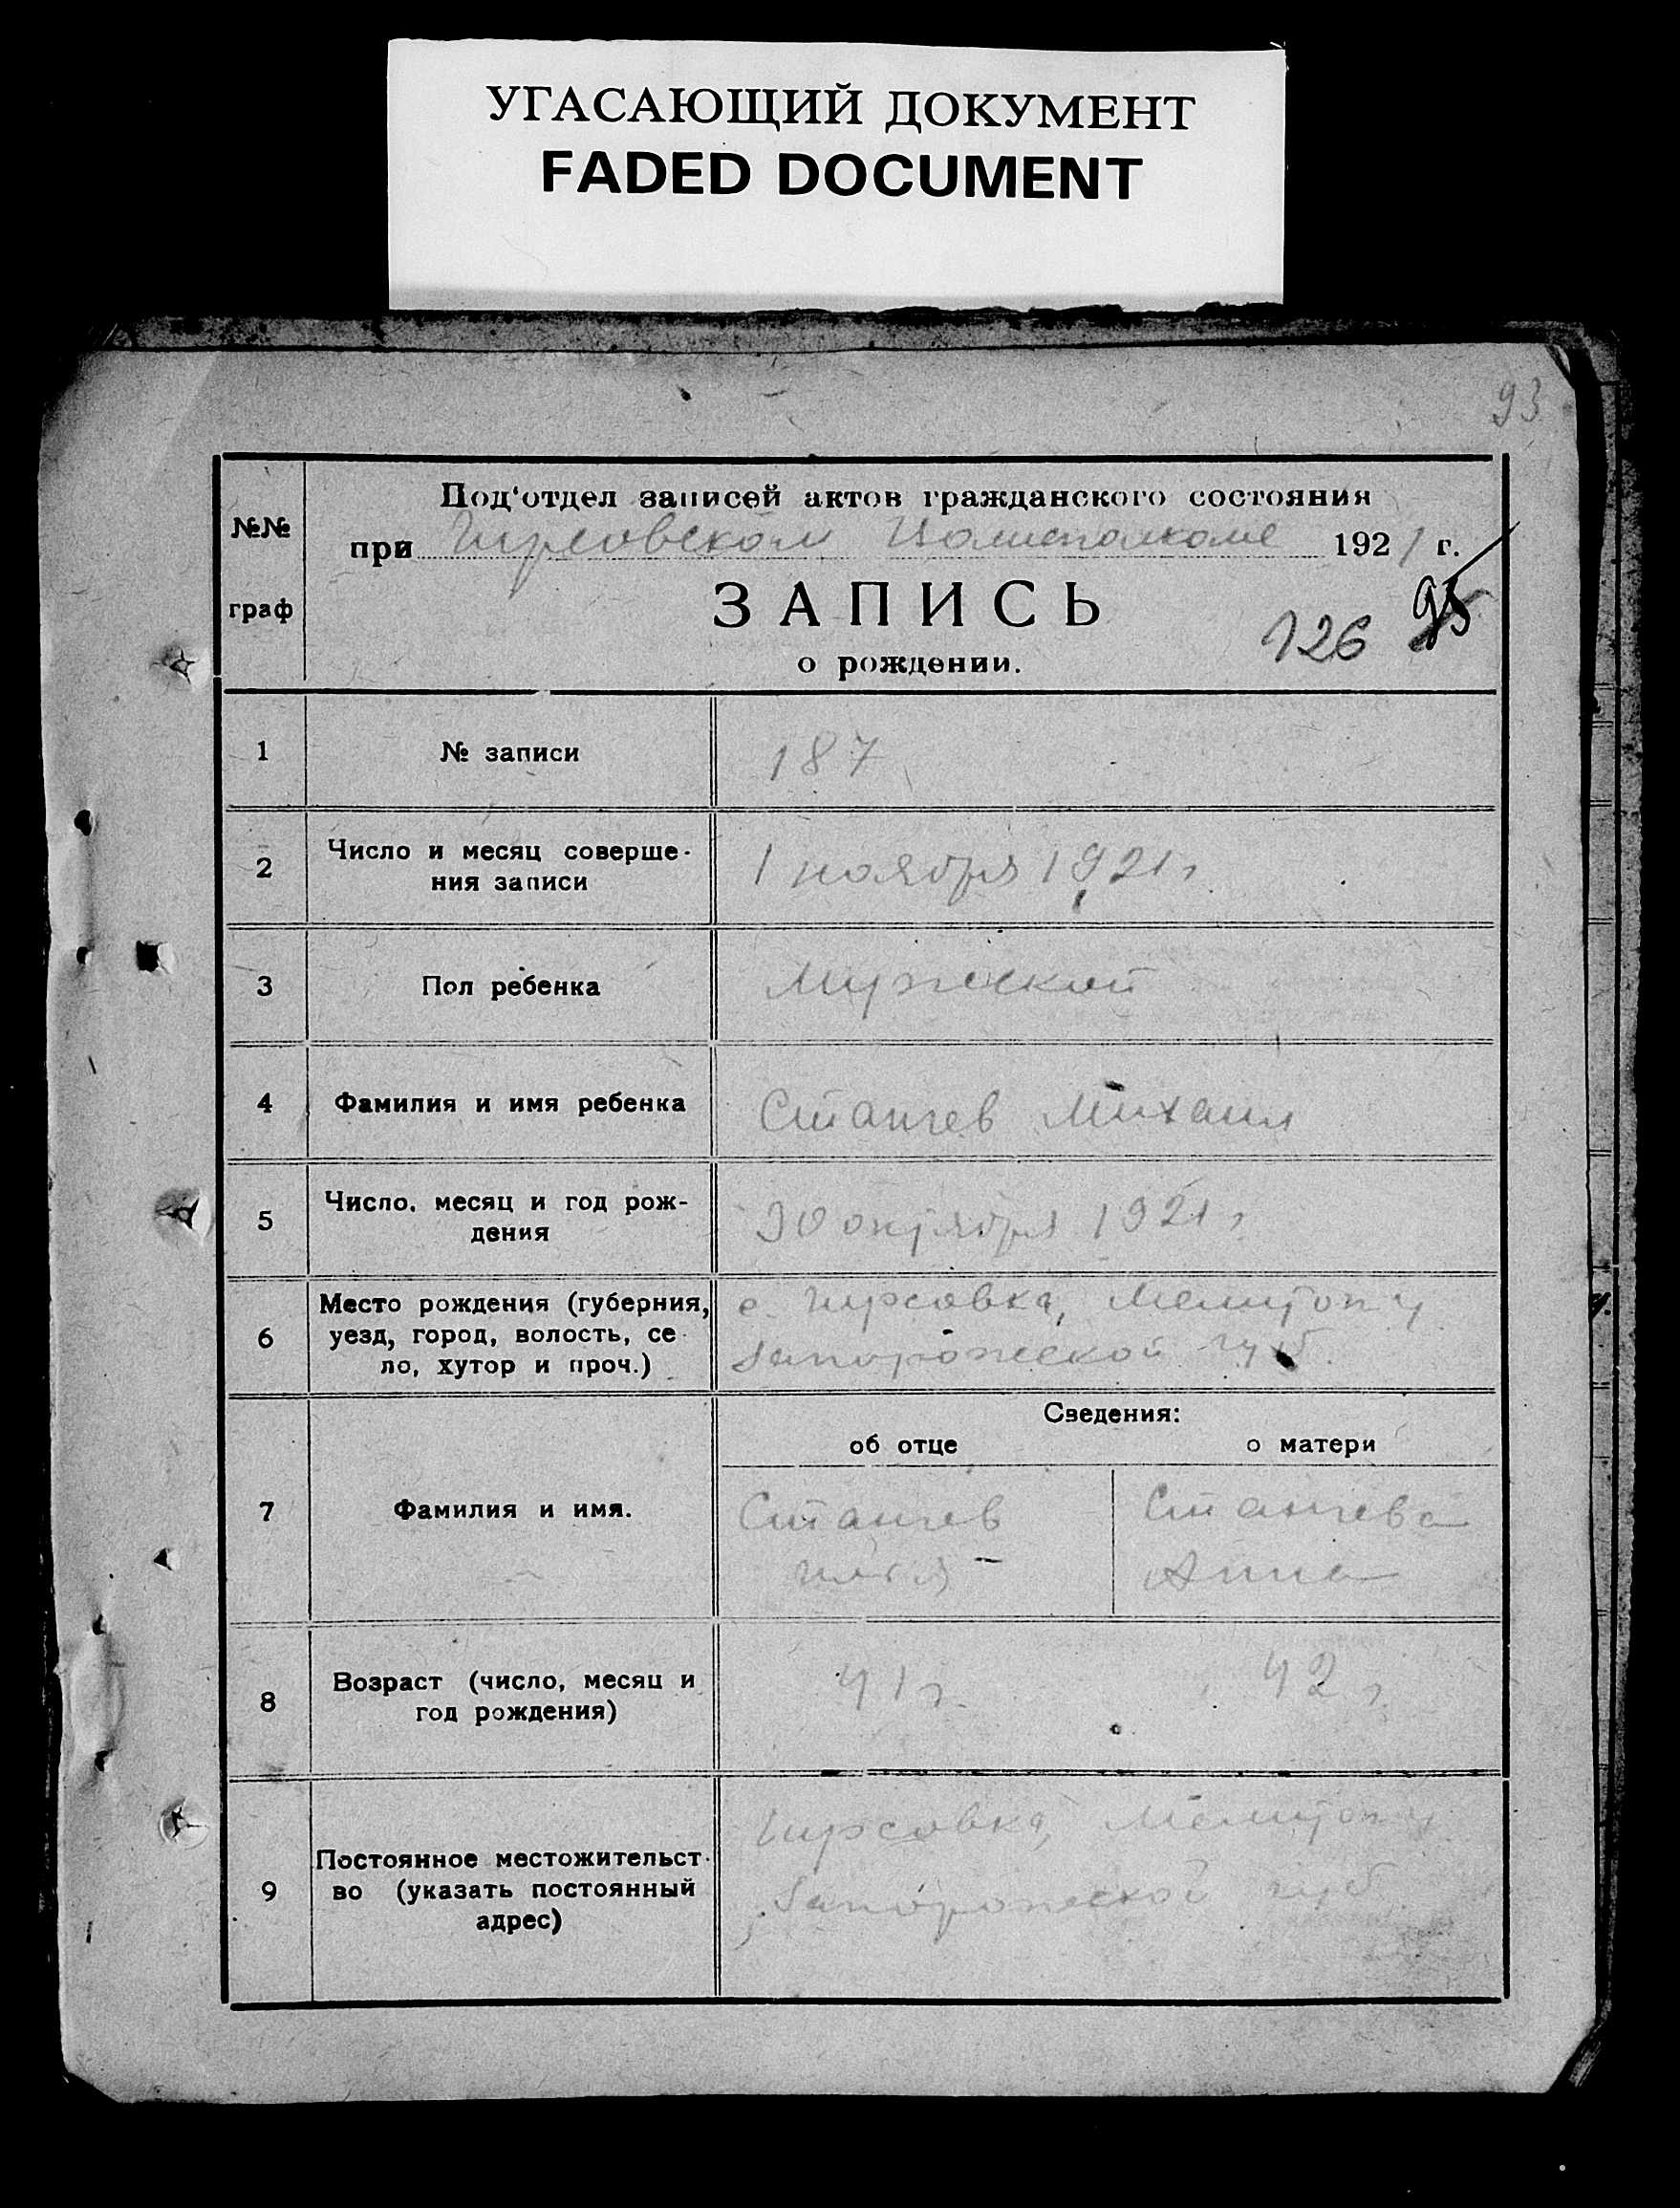 УГАСАЮЩИЙ ДОКУМЕНТ
FADED DOCUMENT
93
№№ граф
Под'отдел записей актов гражданского состояния
при Гирсовском Волисполкоме 1921 г.
ЗАПИСЬ
о рождении.
126 95
1 № записи 187
2 Число и месяц соверше-
ния записи 1 ноября 1921 г
3 Пол ребенка Мужской
4 Фамилия и имя ребенка Станчев Михаил
5 Число, месяц и год рож-
дения 30 октября 1921 г
6 Место рождения (губерния, с. Гирсовка, Мелитоп у
уезд, город, волость, се- Запорожской губ.
ло, хутор и проч.)
Сведения:
об отце о матери
7 Фамилия и имя. Станчев Станчева
Илья Анна
8 Возраст (число, месяц и 41 г. 42 г.
год рождения)
Гирсовка, Мелитоп у
9 Постоянное местожительст-
во (указать постоянный Запорожской губ
адрес)